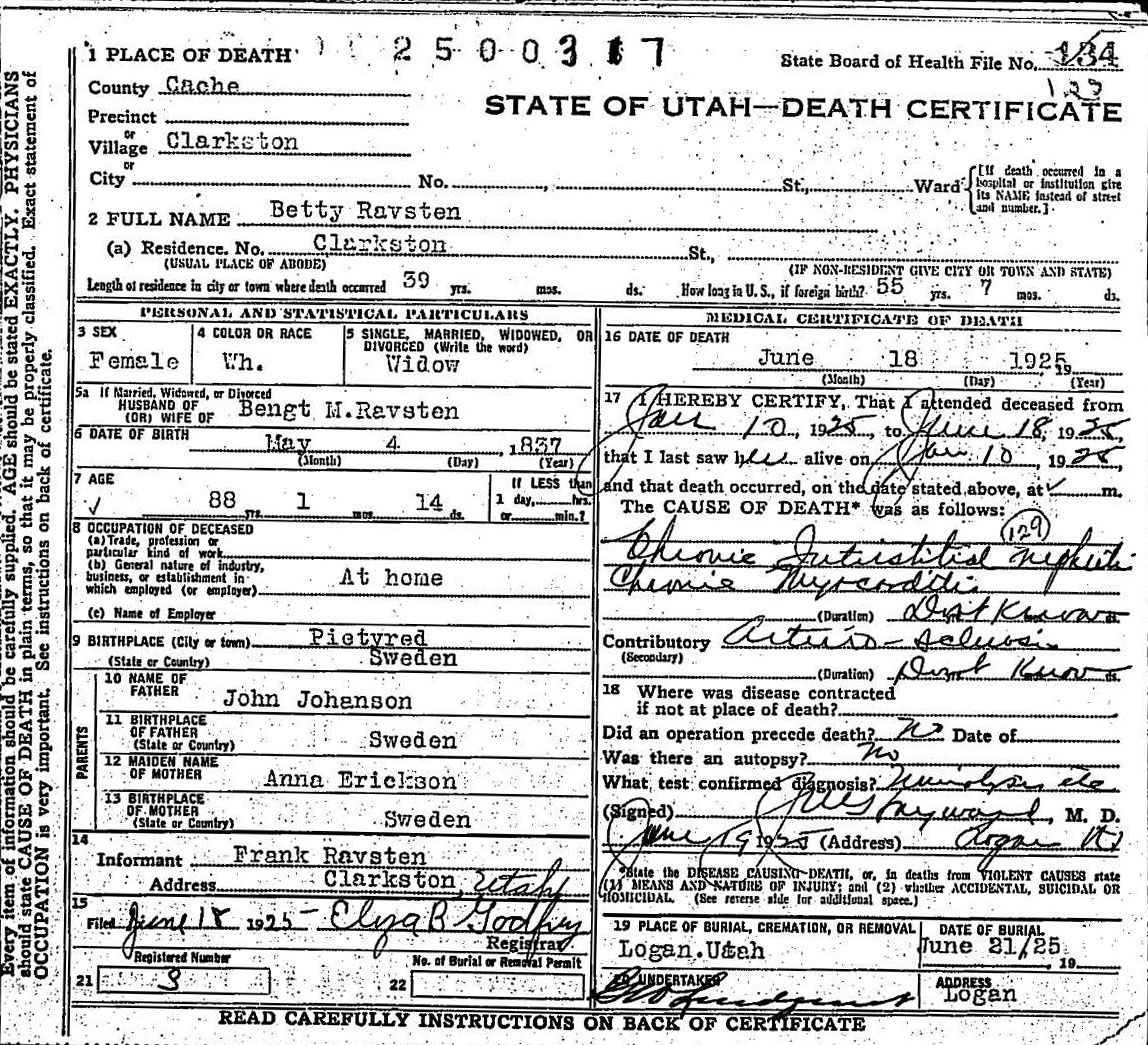 1 PLACE OF DEATH 2500317 State Board of Health File No. 134
County Cache 123
STATE OF UTAH—DEATH CERTIFICATE
Precinct
or
Village Clarkston
or
City No. , St., Ward [If death occurred in a hospital or institution give its NAME instead of street and number.]
2 FULL NAME Betty Ravsten
(a) Residence. No. Clarkston St.,
(USUAL PLACE OF ABODE) (IF NON-RESIDENT GIVE CITY OR TOWN AND STATE)
Length of residence in city or town where death occurred 39 yrs. mos. ds. How long in U. S., if foreign birth? 55 yrs. 7 mos. ds.
PERSONAL AND STATISTICAL PARTICULARS
3 SEX 4 COLOR OR RACE 5 SINGLE, MARRIED, WIDOWED, OR DIVORCED (Write the word)
Female Wh. Widow
5a If Married, Widowed, or Divorced
HUSBAND OF
(OR) WIFE OF Bengt M.Ravsten
6 DATE OF BIRTH May 4 , 1837
(Month) (Day) (Year)
7 AGE If LESS than
88 yrs. 1 mos. 14 ds. 1 day, hrs.
or min.?
8 OCCUPATION OF DECEASED
(a) Trade, profession or
particular kind of work
(b) General nature of industry,
business, or establishment in
which employed (or employer) At home
(c) Name of Employer
9 BIRTHPLACE (City or town) Pietyred
(State or Country) Sweden
PARENTS
10 NAME OF
FATHER John Johanson
11 BIRTHPLACE
OF FATHER
(State or Country) Sweden
12 MAIDEN NAME
OF MOTHER Anna Erickson
13 BIRTHPLACE
OF MOTHER
(State or Country) Sweden
14
Informant Frank Ravsten
Address Clarkston, Utah
15
Filed June 18 1925 Eliza B Godfrey
Registrar
Registered Number No. of Burial or Removal Permit
21 3 22
MEDICAL CERTIFICATE OF DEATH
16 DATE OF DEATH
June 18 1925 19
(Month) (Day) (Year)
17 I HEREBY CERTIFY, That I attended deceased from
Jan 10, 1925, to June 18, 1925,
that I last saw her alive on Jan 10, 1925,
and that death occurred, on the date stated above, at m.
The CAUSE OF DEATH* was as follows:
(129)
Chronic Intirstitial nephritis
Chronic Myocarditis
(Duration) Dont Know ds.
Contributory Arterio-sclerosis
(Secondary)
(Duration) Dont Know ds.
18 Where was disease contracted
if not at place of death?
Did an operation precede death? No Date of
Was there an autopsy? No
What test confirmed diagnosis? Urinolysis etc
(Signed) Hayward, M. D.
June 19 1925 (Address) Logan Ut
*State the DISEASE CAUSING DEATH, or, in deaths from VIOLENT CAUSES state
(1) MEANS AND NATURE OF INJURY; and (2) whether ACCIDENTAL, SUICIDAL OR
HOMICIDAL. (See reverse side for additional space.)
19 PLACE OF BURIAL, CREMATION, OR REMOVAL DATE OF BURIAL
Logan.Utah June 21/25 , 19
20 UNDERTAKER ADDRESS
Logan
READ CAREFULLY INSTRUCTIONS ON BACK OF CERTIFICATE
Every item of information should be carefully supplied. AGE should be stated EXACTLY. PHYSICIANS
should state CAUSE OF DEATH in plain terms, so that it may be properly classified. Exact statement of
OCCUPATION is very important. See instructions on back of certificate.